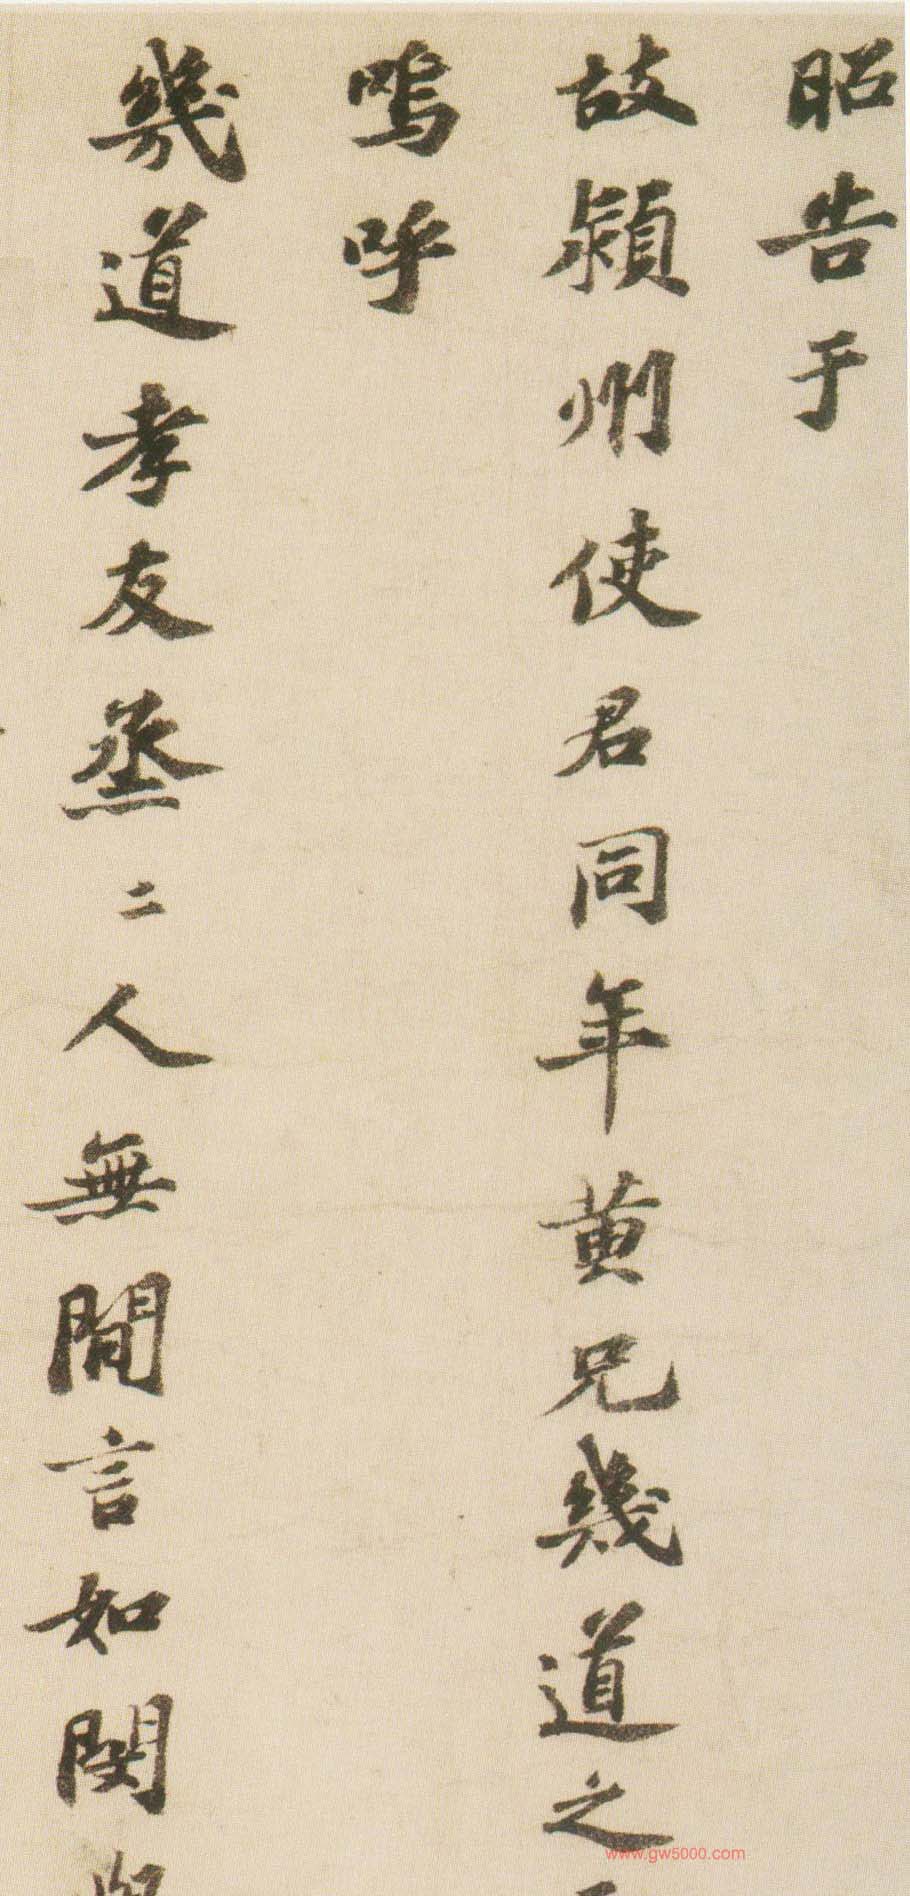 昭告于
故潁州使君同年黄兄幾道之
嗚呼
幾道孝友烝二人無閒言如閔
www.gw5000.com